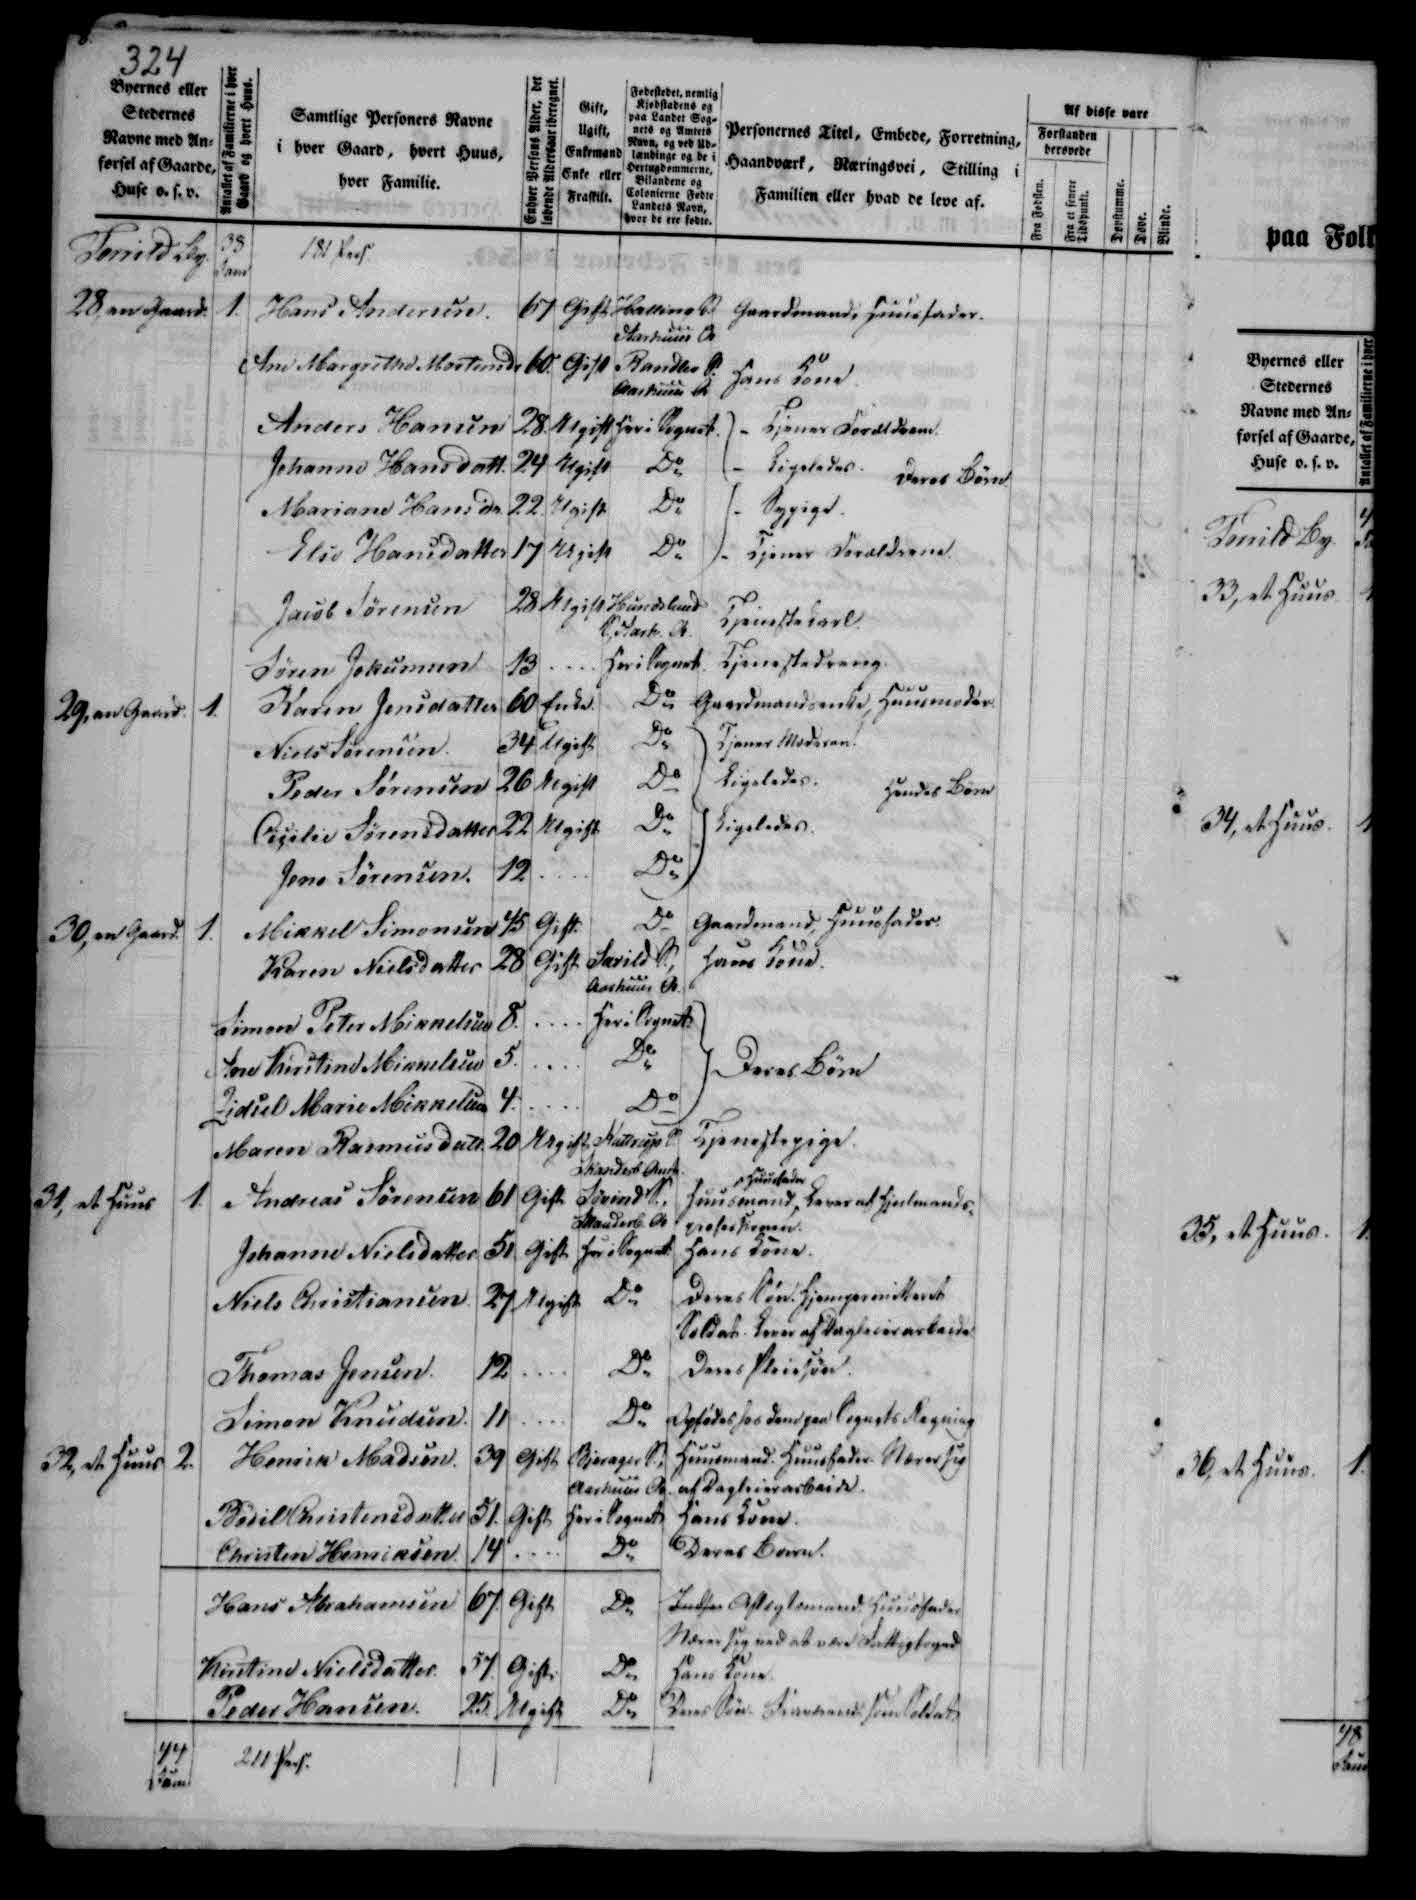 324
Byernes eller
Stedernes
Navne med An-
førsel af Gaarde,
Huse o. s. v.
Antallet af Familierne i hver
Gaard og hvert Huus.
Samtlige Personers Navne
i hver Gaard, hvert Huus,
hver Familie.
Enhver Persons Alder, det
løbende Aldersaar iberegnet.
Gift,
Ugift,
Enkemand
Enke eller
Fraskilt.
Fødestedet, nemlig
Kjøbstadens og
paa Landet Sog-
nets og Amtets
Navn, og ved Ud-
lændinge og de i
Hertugdømmerne,
Bilandene og
Colonierne Fødte
Landets Navn,
hvor de ere fødte.
Personernes Titel, Embede, Forretning,
Haandværk, Næringsvei, Stilling i
Familien eller hvad de leve af.
Af disse vare
Forstanden
berøvede
Fra Fødslen.
Fra et senere
Tidspunkt.
Døvstumme.
Døve.
Blinde.
Torrild By 38 Fam 181 Pers.
28, en Gaard. 1. Hans Andersen. 67 Gift Halling S. Gaardmand, Huusfader.
Aarhuus A
Ane Margrethe Mortensdr 60. Gift Randlev S. Hans Kone.
Aarhuus A
Anders Hansen 28. Ugift Her i Sognet. - Tjener Forældrene.
Johanne Hansdatt. 24 Ugift Do - Ligeledes. Deres Børn
Mariane Hansdr. 22. Ugift Do - Sypige.
Else Hansdatter 17 Ugift Do - Tjener Forældrene.
Jacob Sørensen 28 Ugift Hundslund Tjenestekarl.
S. Aarh. A.
Søren Jokumsen 13 .... Her i Sognet Tjenestedreng.
29, en Gaard. 1. Karen Jensdatter 60 Enke. Do Gaardmandsenke, Huusmoder.
Niels Sørensen. 34 Ugift Do Tjener Moderen.
Peder Sørensen 26 Ugift Do Ligeledes. Hendes Børn
Cicilie Sørensdatter 22 Ugift Do Ligeledes.
Jens Sørensen. 12 .... Do
30, en Gaard. 1. Mikkel Simonsen 45 Gift. Do Gaardmand, Huusfader.
Karen Nielsdatter 28 Gift Saxild S., Hans Kone.
Aarhuus A.
Simon Peter Mikkelsen 8. .... Her i Sognet
Ane Kirstine Mikkelsen 5. .... Do Deres Børn
Zidsel Marie Mikkelsen 4. .... Do
Maren Rasmusdatt. 20 Ugift Kattrup S. Tjenestepige.
Skanderb. Amt.
Huusfader
31, et Huus 1. Andreas Sørensen 61 Gift Søvind S., Huusmand, Lever af Hjulmands-
Skanderb. A professionen.
Johanne Nielsdatter 51. Gift Her i Sognet Hans Kone.
Niels Christiansen. 27 Ugift Do Deres Søn. Hjempermitteret
Soldat. Lever af Dagleierarbeide
Thomas Jensen. 12 .... Do Deres Pleiesøn.
Simon Knudsen. 11 .... Do Opfødes hos dem paa Sognets Regning
32, et Huus 2. Henrik Madsen. 39 Gift Bjerager S., Huusmand. Huusfader. Nærer sig
Aarhuus A. af Dagleierarbeide.
Bodil Christensdatter 51. Gift Her i Sognet Hans Kone.
Christen Henriksen. 14 .... Do Deres Barn.
Hans Abrahamsen 67. Gift Do Aftægtsmand. Huusfader
Nærer sig ved at være Fattigfoged
Kirstine Nielsdatter. 57. Gift. Do Hans Kone.
Peder Hansen. 25. Ugift Do Deres Søn. Fraværende som Soldat
44 Fam 211 Pers.
paa Folk
Byernes eller
Stedernes
Navne med An-
førsel af Gaarde,
Huse o. s. v.
Antallet af Familierne i hver
Torrild By.
33, et Huus. 1
34, et Huus. 1
35, et Huus. 1.
36, et Huus. 1.
48
Fam